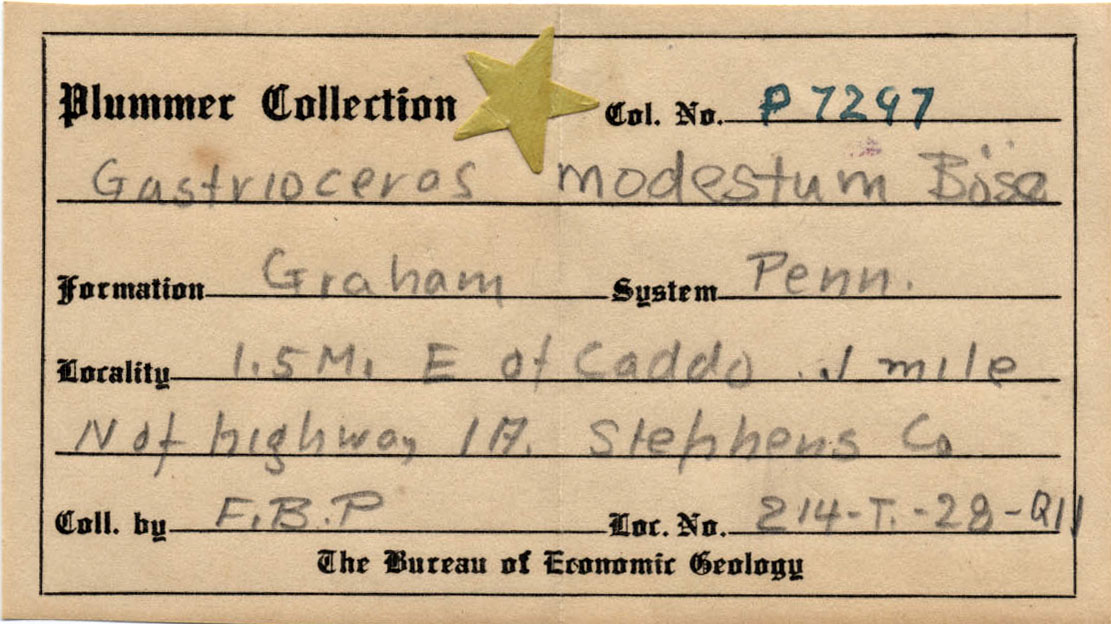 Plummer Collection Col. No. P 7297
Gastrioceras modestum Böse
Formation Graham System Penn.
Locality 1.5 M. E of Caddo .1 mile
N of highway 1A. Stephens Co
Coll. by F.B.P Loc. No. 214-T.-28-Q11
The Bureau of Economic Geology